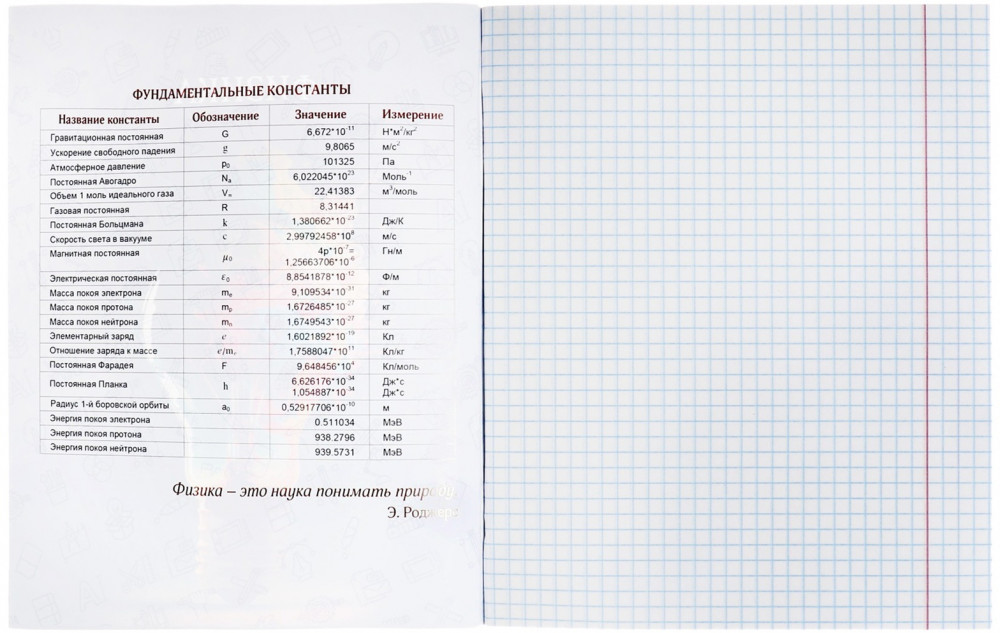 ФУНДАМЕНТАЛЬНЫЕ КОНСТАНТЫ
Название константы Обозначение Значение Измерение
Гравитационная постоянная G 6,672*10⁻¹¹ Н*м²/кг²
Ускорение свободного падения g 9,8065 м/с²
Атмосферное давление p₀ 101325 Па
Постоянная Авогадро Nₐ 6,022045*10²³ Моль⁻¹
Объем 1 моль идеального газа V 22,41383 м³/моль
Газовая постоянная R 8,31441
Постоянная Больцмана k 1,380662*10⁻²³ Дж/К
Скорость света в вакууме c 2,99792458*10⁸ м/с
Магнитная постоянная μ₀ 4p*10⁻⁷= Гн/м
1,25663706*10⁻⁶
Электрическая постоянная ε₀ 8,8541878*10⁻¹² Ф/м
Масса покоя электрона mₑ 9,109534*10⁻³¹ кг
Масса покоя протона mₚ 1,6726485*10⁻²⁷ кг
Масса покоя нейтрона mₙ 1,6749543*10⁻²⁷ кг
Элементарный заряд e 1,6021892*10⁻¹⁹ Кл
Отношение заряда к массе e/mₑ 1,7588047*10¹¹ Кл/кг
Постоянная Фарадея F 9,648456*10⁴ Кл/моль
Постоянная Планка h 6,626176*10⁻³⁴ Дж*с
1,054887*10⁻³⁴ Дж*с
Радиус 1-й боровской орбиты a₀ 0,52917706*10⁻¹⁰ м
Энергия покоя электрона 0.511034 МэВ
Энергия покоя протона 938.2796 МэВ
Энергия покоя нейтрона 939.5731 МэВ
Физика – это наука понимать природу
Э. Роджерс